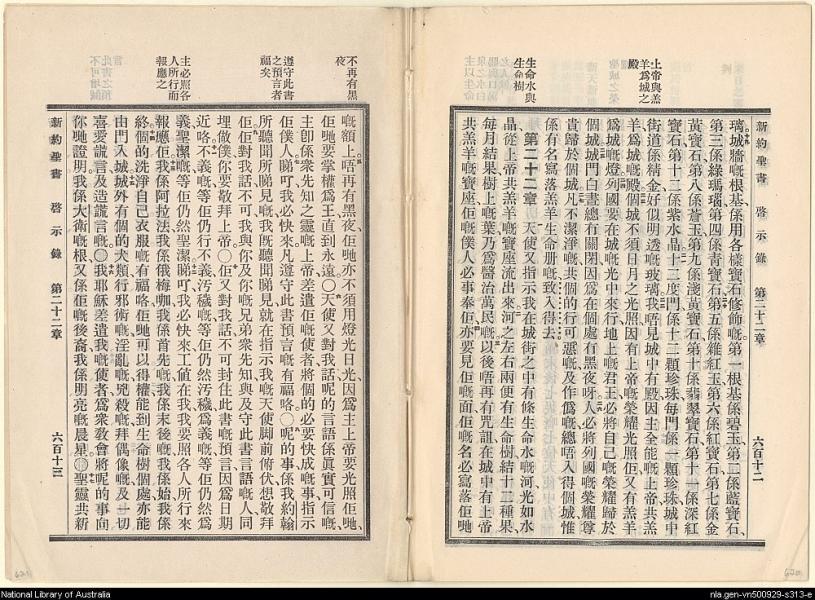 新約聖書 啓示錄 第二十二章 六百十二
璃城牆嘅根基係用各樣寶石修飾嘅第一根基係碧玉第二係藍寶石
第三係綠瑪瑙第四係青寶石第五係雜紅玉第六係紅寶石第七係金
黃寶石第八係蒼玉第九係淺黃寶石第十係翡翠寶石第十一係深紅
寶石第十二係紫水晶十二度門係十二顆珍珠每門係一顆珍珠城中
街道係精金好似明透嘅玻璃我唔見城中有殿因主全能嘅上帝共羔
羊爲城嘅殿個城不須日月之光照因有上帝嘅榮耀光照佢又有羔羊
爲城嘅燈列國要在城嘅光中來行地上嘅君王必將自己嘅榮耀歸於
個城城門白晝總有關閉因爲在個處有黑夜呀人必將列國嘅榮耀尊
貴歸於個城凡不潔淨嘅共個的行可惡嘅及作僞嘅總唔入得個城惟
係有名寫落羔羊生命册嘅致入得去
第二十二章 天使又指示我在城街之中有條生命水嘅河光如水
晶從上帝共羔羊嘅寶座流出來河之左右兩便有生命樹結十二種果
每月結果樹上嘅葉乃爲醫治萬民嘅以後唔再有咒詛在城中有上帝
共羔羊嘅寶座佢嘅僕人必事奉佢亦要見佢嘅面佢嘅名必寫落佢哋
上帝與羔
羊爲城之
殿
生命水與
生命樹
嘅額上唔再有黑夜佢哋亦不須用燈光日光因爲主上帝要光照佢哋
佢哋要掌權爲王直到永遠〇天使又對我話呢的言語係眞實可信嘅
主卽係衆先知之靈嘅上帝差遣佢嘅使者將個的必要快成嘅事指示
佢僕人睇吖我必快來凡遵守此書預言嘅有福咯〇呢的事係我約翰
所聽聞所睇見嘅我既聽聞睇見就在指示我嘅天使脚前俯伏想敬拜
佢佢對我話不可我與你及你嘅兄弟衆先知與及守此書言語嘅人同
埋做僕你要敬拜上帝〇佢又對我話不可封住此書嘅預言因爲日期
近咯不義嘅等佢仍行不義汚穢嘅等佢仍然汚穢爲義嘅等佢仍然爲
義聖潔嘅等佢仍然聖潔睇吖我必快來工値在我我要照各人所行來
報應佢我係阿拉法我係俄梅咖我係首先嘅我係末後嘅我係始我係
終個的洗淨自己衣服嘅有福咯佢哋可以得權能到生命樹個處亦能
由門入城城外有個的犬類行邪術嘅淫亂嘅兇殺嘅拜偶像嘅及一切
喜愛謊言及造謊言嘅〇我耶穌差遣我嘅使者爲衆敎會將呢的事向
你哋證明我係大衛嘅根又係佢嘅後裔我係明亮嘅晨星〇聖靈共新
新約聖書 啓示錄 第二十二章 六百十三
不再有黑
夜
遵守此書
之預言者
福矣
主必照各
人所行而
報應之
National Library of Australia
nla.gen-vn500929-s313-e